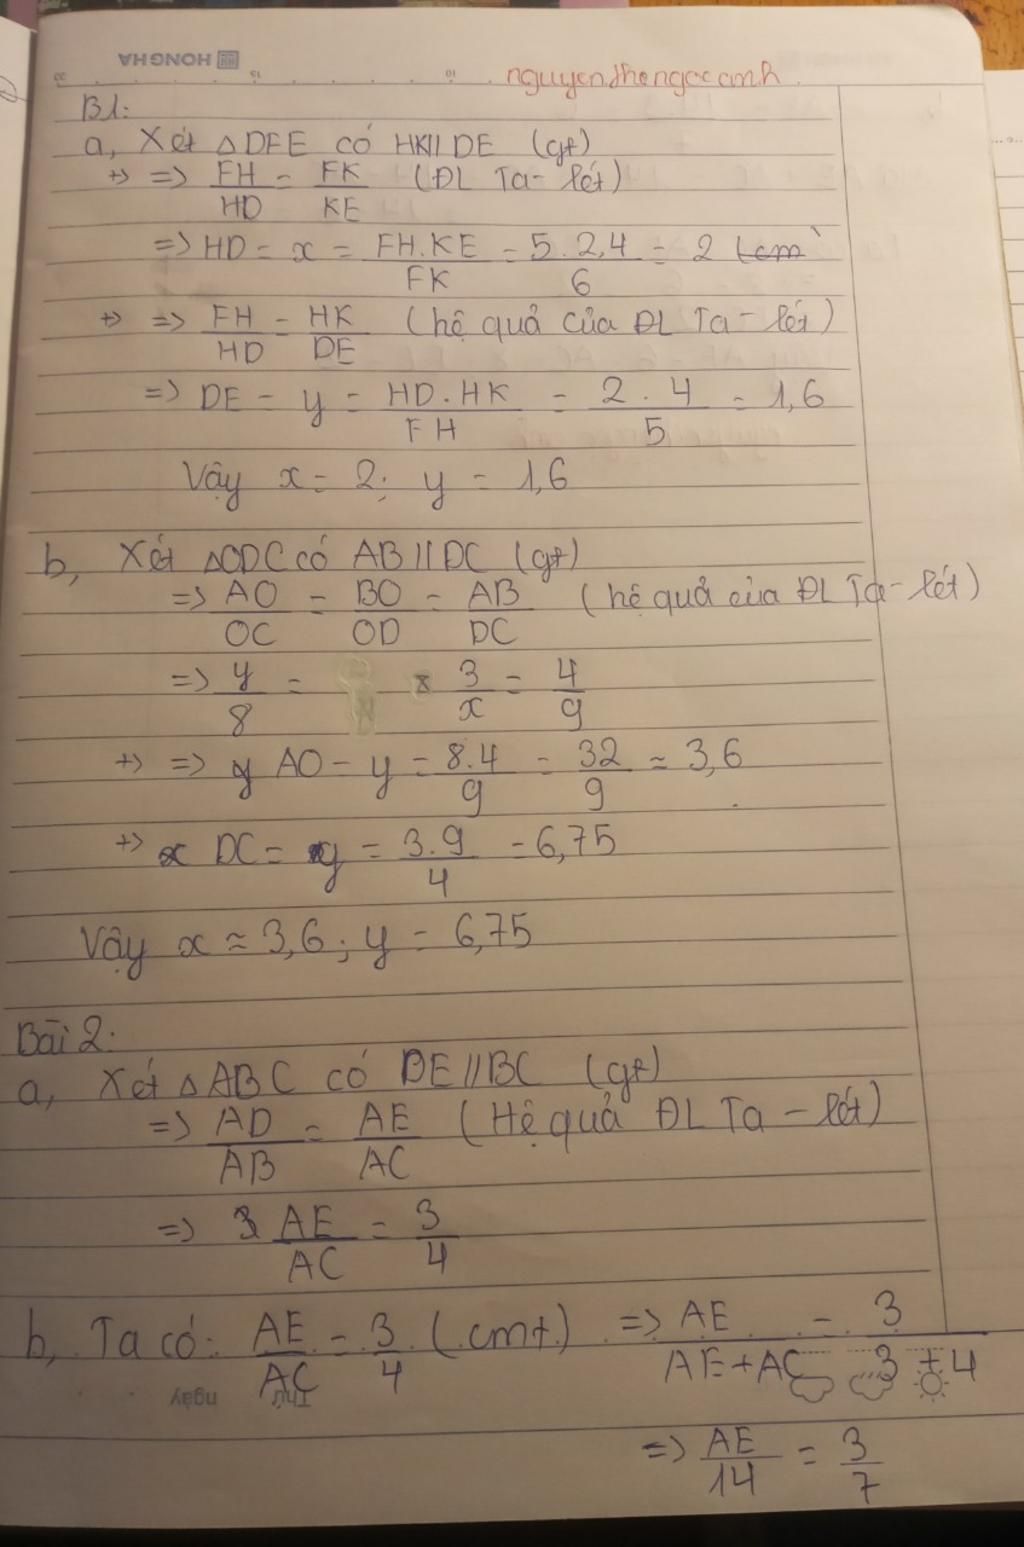 HONGHA
nguyenthengocanh
B1:
a, Xét △DFE có HK//DE (gt)
+> => FH/HD = FK/KE (ĐL Ta-lét)
=> HD = x = FH.KE/FK = 5.2,4/6 = 2 (cm
+> => FH/HD = HK/DE (hệ quả của ĐL Ta-lét)
=> DE = y = HD.HK/FH = 2.4/5 = 1,6
Vậy x = 2; y = 1,6
b, Xét △ODC có AB//DC (gt)
=> AO/OC = BO/OD = AB/DC (hệ quả của ĐL Ta-lét)
=> y/8 = 3/x = 4/9
+> => y AO = y = 8.4/9 = 32/9 ≈ 3,6
+> x DC = y = 3.9/4 = 6,75
Vậy x ≈ 3,6; y = 6,75
Bài 2:
a, Xét △ABC có DE//BC (gt)
=> AD/AB = AE/AC (Hệ quả ĐL Ta-lét)
=> 3 AE/AC = 3/4
b, Ta có: AE/AC = 3/4 (cmt) => AE/AE+AC = 3/3+4
Thứ ngày
=> AE/14 = 3/7